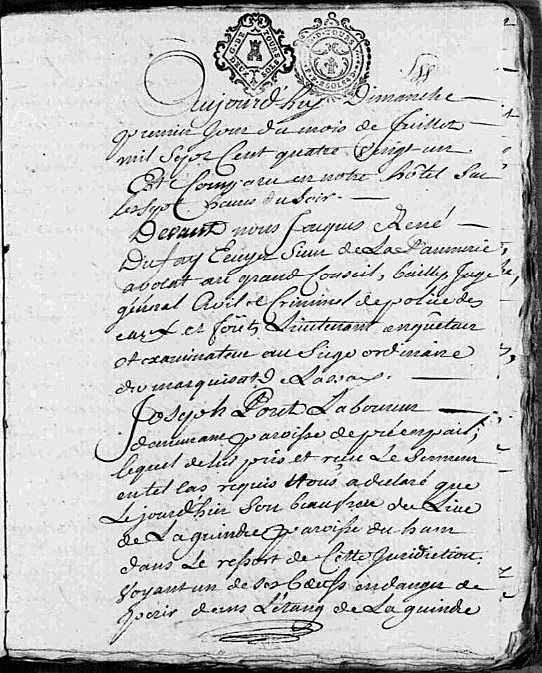 G. DE TOURS
DEUX SOLS
G. D. TOURS
2
Aujourd'huy Dimanche
premier Jour du mois de Juillet
mil Sept Cent quatre Vingt un
Est Comparu en notre hôtel Sur
les Sept heures du Soir.
Devant nous Jacques René
Dufay Ecuyer Sieur de La
avocat au grand Conseil, bailly, Juge
général Civil et Criminel de police des
eaux et forêts, Lieutenant enquêteur
et examinateur au Siege ordinaire
du marquisat de Lassay.
Joseph Laboureur
demeurant paroisse de préenpail;
lequel de luy pris et reçu Le Serment
en tel cas requis Nous a declaré que
Le jourd'hier Son beaufrere du Lieu
de La guindre paroisse du ham
dans Le ressort de Cette Juridiction.
Voyant un de Ses boeufs en danger de
perir dans L'étang de La guindre